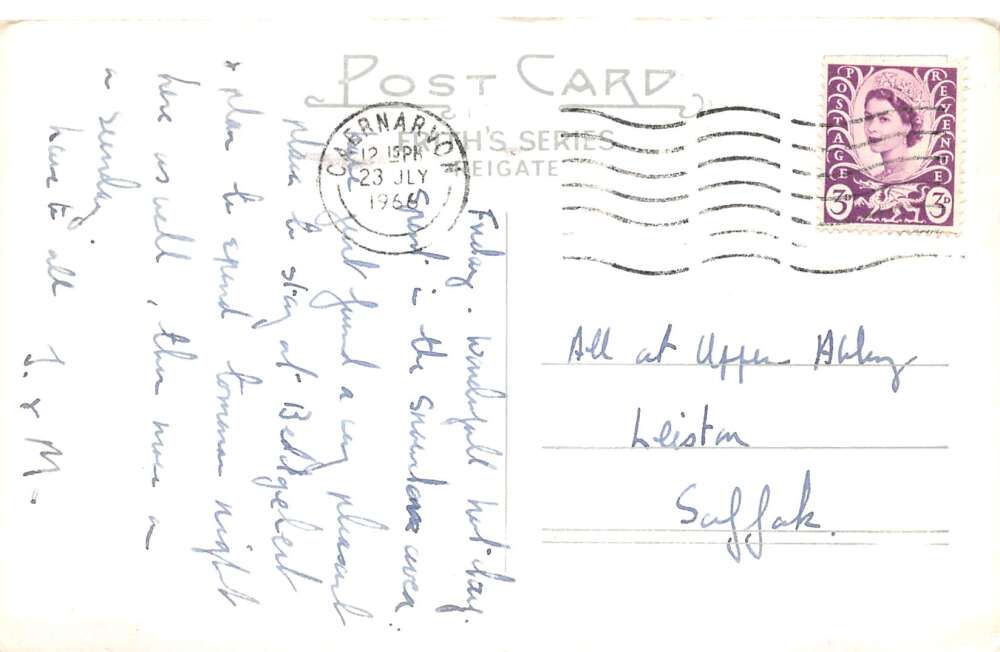 POST CARD
FRITH'S SERIES
REIGATE
CAERNARVON
12 15 PM
23 JLY
1966
POSTAGE REVENUE
3D 3D
Friday. Wonderfull hot day
spent in the Snowdown area.
Have just found a very pleasant
place to stay at Beddgelert
& plan to spend tomorrow night
here as well, then move on
on Sunday.
love to all
J. & M.
All at Upper Abbey
Leiston
Suffolk.